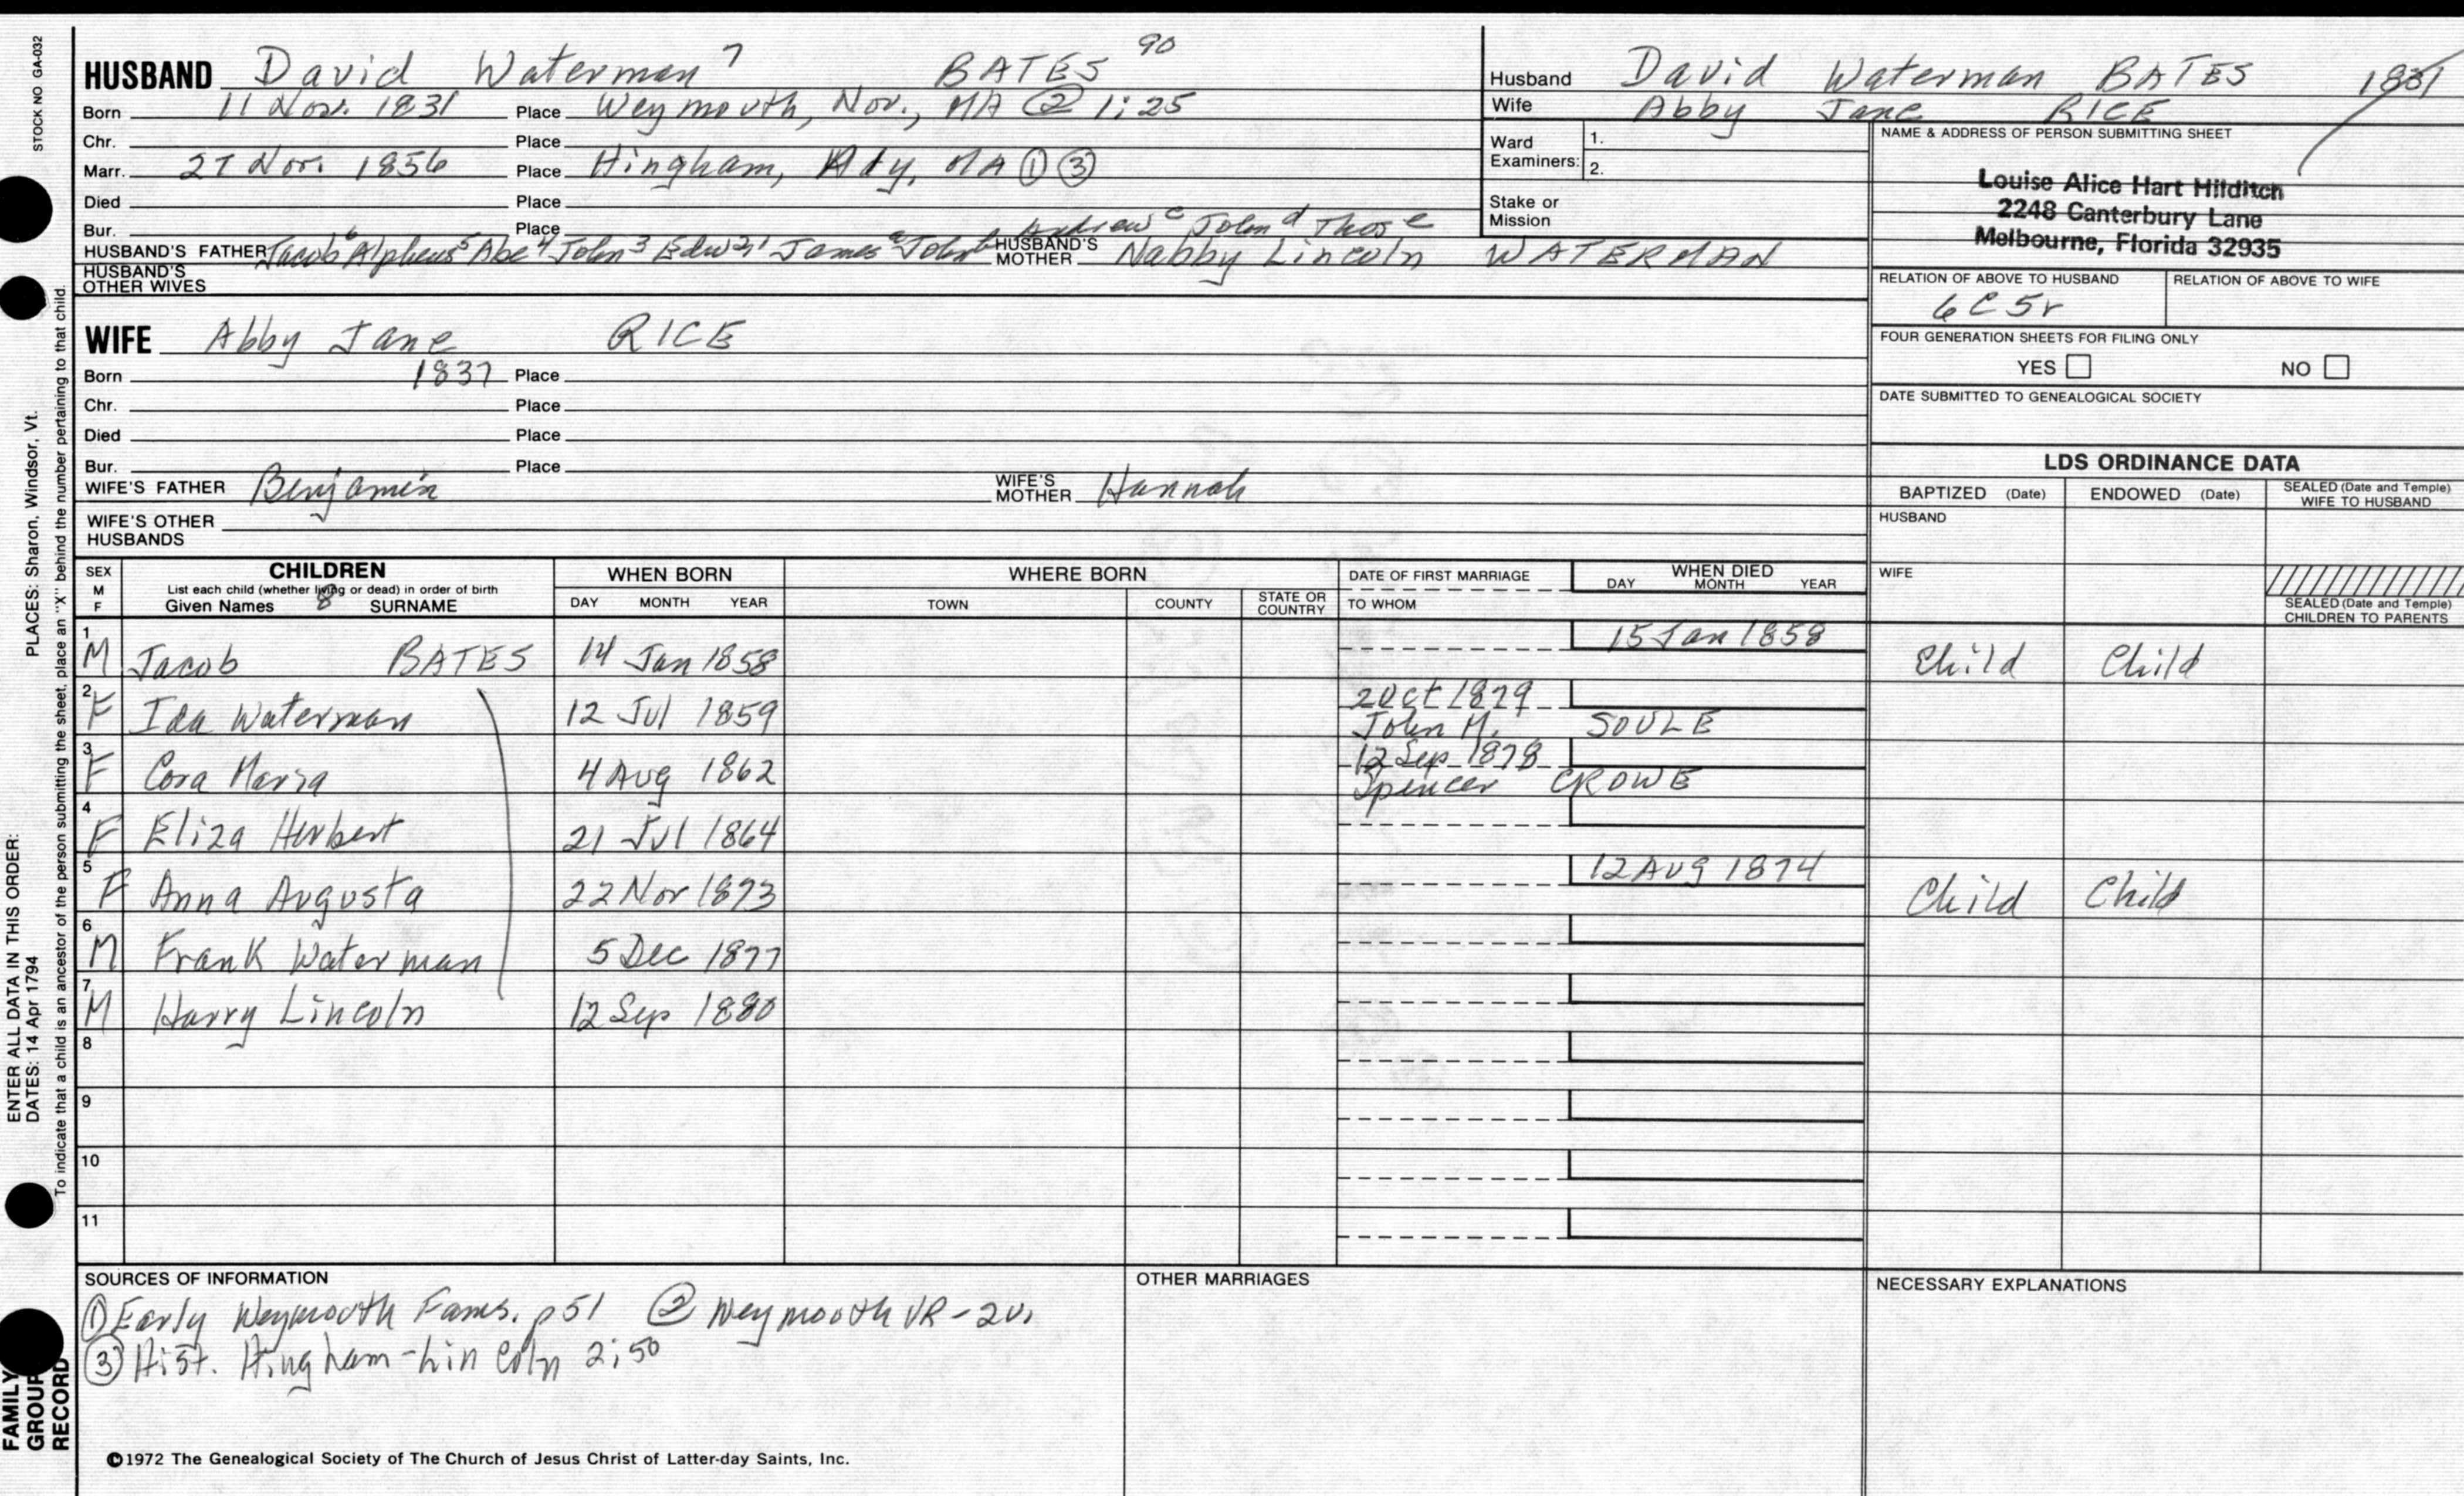 STOCK NO GA-032
HUSBAND David Waterman 7 BATES 90
Born 11 Nov. 1831 Place Weymouth, Nor., MA ② 1:25
Chr. Place
Marr. 27 Nov. 1856 Place Hingham, MA ① ③
Died Place
Bur. Place Andrew c John d Thos e
HUSBAND'S FATHER Jacob 6 Alpheus 5 Abe 4 John 3 Edw 2 1 James a John b HUSBAND'S MOTHER Nabby Lincoln WATERMAN
HUSBAND'S OTHER WIVES
Husband David Waterman BATES 1831
Wife Abby Jane RICE
Ward Examiners: 1.
2.
Stake or Mission
NAME & ADDRESS OF PERSON SUBMITTING SHEET
Louise Alice Hart Hilditch
2248 Canterbury Lane
Melbourne, Florida 32935
RELATION OF ABOVE TO HUSBAND RELATION OF ABOVE TO WIFE
6C5r
FOUR GENERATION SHEETS FOR FILING ONLY
YES NO
DATE SUBMITTED TO GENEALOGICAL SOCIETY
WIFE Abby Jane RICE
Born 1837 Place
Chr. Place
Died Place
Bur. Place
WIFE'S FATHER Benjamin WIFE'S MOTHER Hannah
WIFE'S OTHER HUSBANDS
LDS ORDINANCE DATA
BAPTIZED (Date) ENDOWED (Date) SEALED (Date and Temple) WIFE TO HUSBAND
HUSBAND
WIFE
SEALED (Date and Temple) CHILDREN TO PARENTS
SEX M F CHILDREN WHEN BORN WHERE BORN DATE OF FIRST MARRIAGE WHEN DIED
List each child (whether living or dead) in order of birth
Given Names 8 SURNAME DAY MONTH YEAR TOWN COUNTY STATE OR COUNTRY TO WHOM DAY MONTH YEAR
1 M Jacob BATES 14 Jan 1858 15 Jan 1858 Child Child
2 F Ida Waterman 12 Jul 1859 2 Oct 1879 John M. SOULE
3 F Cora Maria 4 Aug 1862 12 Sep 1878 Spencer CROWE
4 F Eliza Herbert 21 Jul 1864
5 F Anna Augusta 22 Nov 1873 12 AUG 1874 Child Child
6 M Frank Waterman 5 Dec 1877
7 M Harry Lincoln 12 Sep 1880
8
9
10
11
SOURCES OF INFORMATION
① Early Weymouth Fams. p51 ② Weymouth VR-2v.
③ Hist. Hingham-Lincoln 2:50
OTHER MARRIAGES
NECESSARY EXPLANATIONS
©1972 The Genealogical Society of The Church of Jesus Christ of Latter-day Saints, Inc.
ENTER ALL DATA IN THIS ORDER:
DATES: 14 Apr 1794 PLACES: Sharon, Windsor, Vt.
To indicate that a child is an ancestor of the person submitting the sheet, place an "X" behind the number pertaining to that child.
FAMILY
GROUP
RECORD